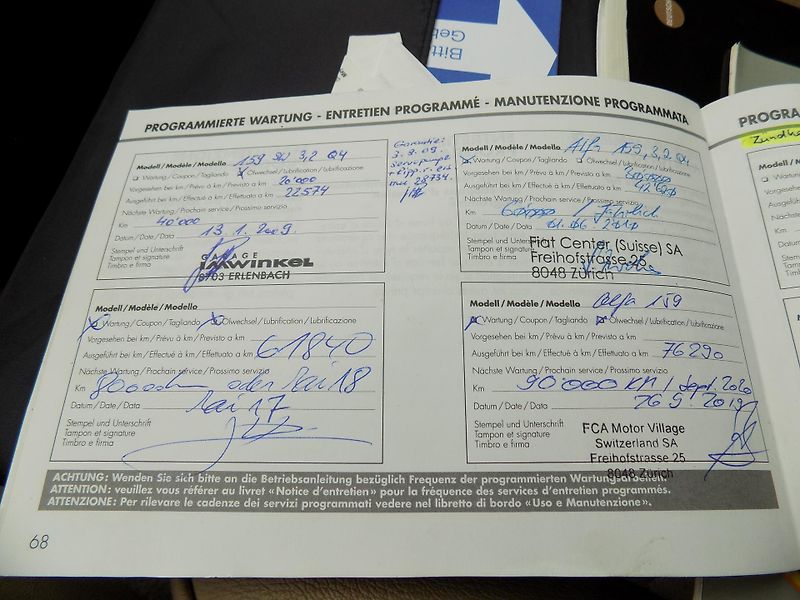 Bitt
Geb
PROGRAMMIERTE WARTUNG - ENTRETIEN PROGRAMMÉ - MANUTENZIONE PROGRAMMATA
Modell / Modèle / Modello 159 SW 3,2 Q4
Wartung / Coupon / Tagliando Ölwechsel / Lubrification / Lubrificazione
Vorgesehen bei km / Prévu à km / Previsto a km 20'000
Ausgeführt bei km / Effectué à km / Effettuato a km 22574
Nächste Wartung / Prochain service / Prossimo servizio
Km 40'000
Datum / Date / Data 13.1.2009
Stempel und Unterschrift
Tampon et signature
Timbro e firma
GARAGE
IMWINKEL
8703 ERLENBACH
Garantie:
3.9.09.
Servopumpe
28'734.
Modell / Modèle / Modello Alfa 159, 3,2 Q4
Wartung / Coupon / Tagliando Ölwechsel / Lubrification / Lubrificazione
Vorgesehen bei km / Prévu à km / Previsto a km
Ausgeführt bei km / Effectué à km / Effettuato a km
Nächste Wartung / Prochain service / Prossimo servizio
Km / Jährlich
Datum / Date / Data 01.06.2010
Stempel und Unterschrift
Tampon et signature
Timbro e firma
Fiat Center (Suisse) SA
Freihofstrasse 25
8048 Zürich
Modell / Modèle / Modello
Wartung / Coupon / Tagliando Ölwechsel / Lubrification / Lubrificazione
Vorgesehen bei km / Prévu à km / Previsto a km
Ausgeführt bei km / Effectué à km / Effettuato a km 61840
Nächste Wartung / Prochain service / Prossimo servizio
Km 80000km oder Mai 18
Datum / Date / Data Mai 17
Stempel und Unterschrift
Tampon et signature
Timbro e firma
Modell / Modèle / Modello Alfa 159
Wartung / Coupon / Tagliando Ölwechsel / Lubrification / Lubrificazione
Vorgesehen bei km / Prévu à km / Previsto a km
Ausgeführt bei km / Effectué à km / Effettuato a km 76290
Nächste Wartung / Prochain service / Prossimo servizio
Km 90'000 KM / Sept. 2020
Datum / Date / Data 26.9.2019
Stempel und Unterschrift
Tampon et signature
Timbro e firma
FCA Motor Village
Switzerland SA
Freihofstrasse 25
8048 Zürich
ACHTUNG: Wenden Sie sich bitte an die Betriebsanleitung bezüglich Frequenz der programmierten Wartungsarbeiten.
ATTENTION: veuillez vous référer au livret «Notice d'entretien» pour la fréquence des services d'entretien programmés.
ATTENZIONE: Per rilevare le cadenze dei servizi programmati vedere nel libretto di bordo «Uso e Manutenzione».
68
PROGRA
Zündke
Modell / M
Wartung
Vorgesehen
Ausgeführt
Nächste W
Km
Datum / D
Stempel u
Tampon et
Timbro e f
Modell
Wart
Vorgese
Ausgef
Nächst
Km
Datum
Stemp
Tamp
Timbr